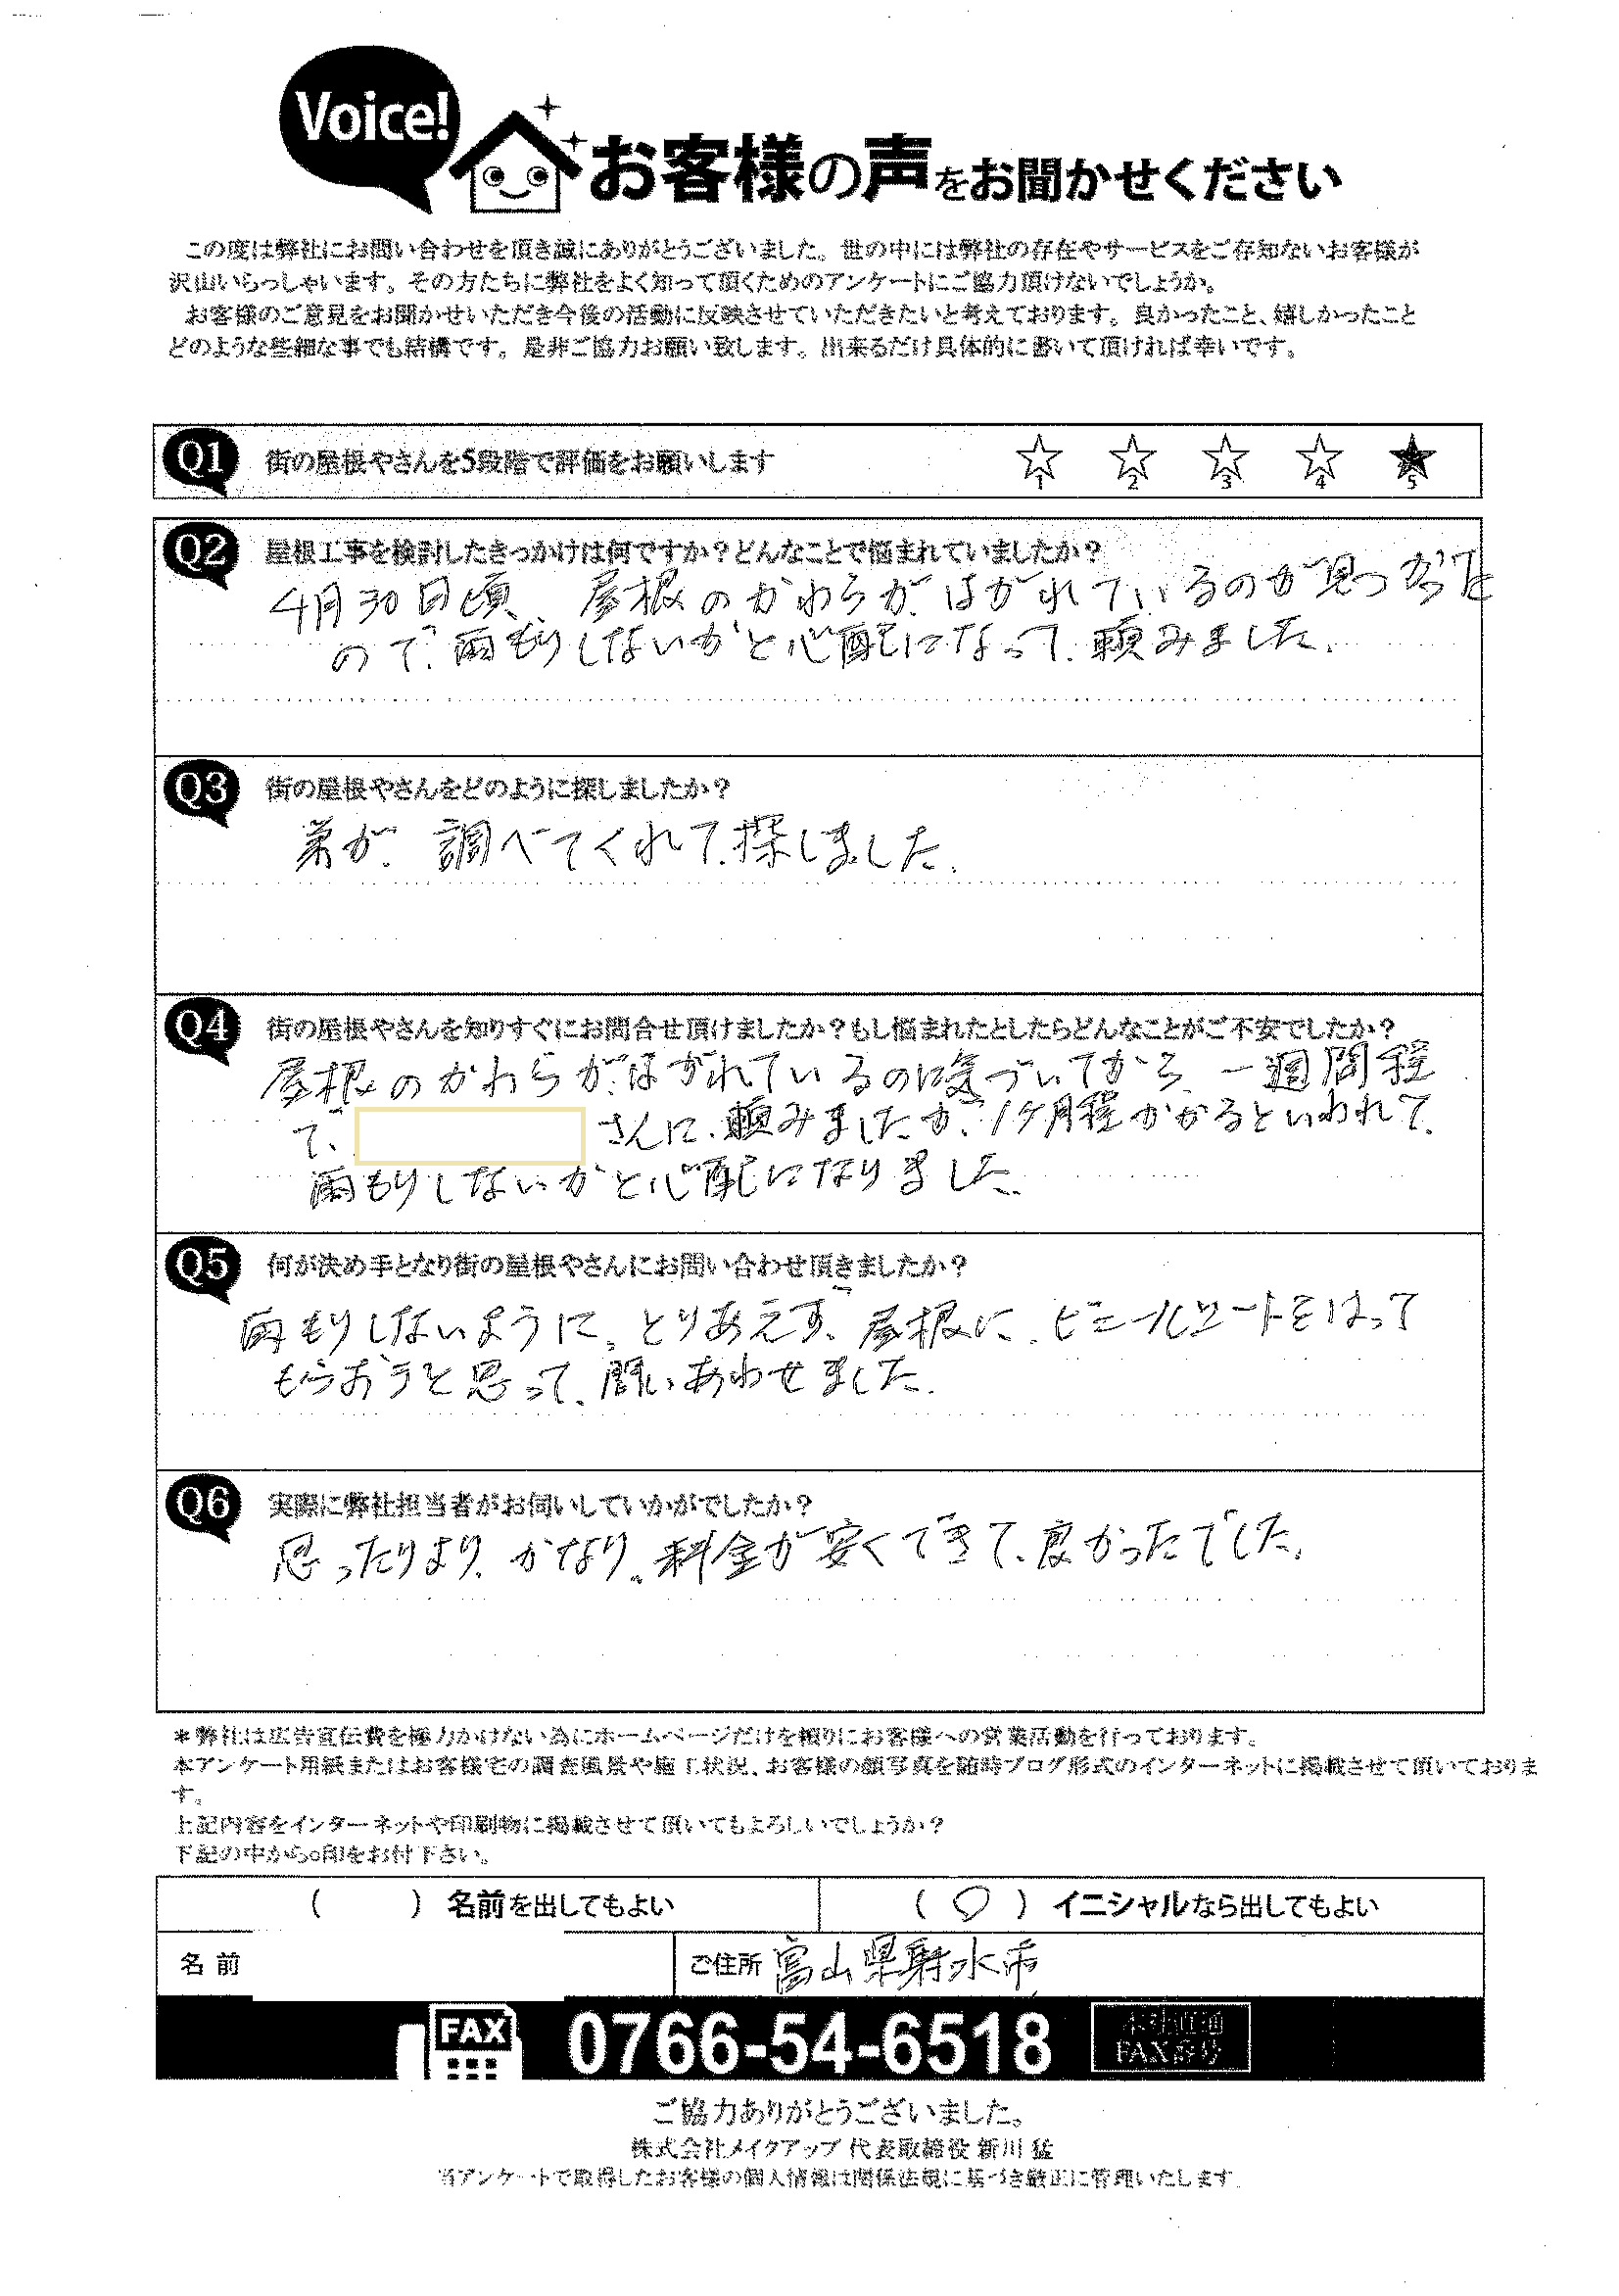 Voice!
お客様の声をお聞かせください
この度は弊社にお問い合わせを頂き誠にありがとうございました。世の中には弊社の存在やサービスをご存知ないお客様が
沢山いらっしゃいます。その方たちに弊社をよく知って頂くためのアンケートにご協力頂けないでしょうか。
お客様のご意見をお聞かせいただき今後の活動に反映させていただきたいと考えております。良かったこと、嬉しかったこと
どのような些細な事でも結構です。是非ご協力お願い致します。出来るだけ具体的に書いて頂ければ幸いです。
Q1 街の屋根やさんを5段階で評価をお願いします
1 2 3 4 5
Q2 屋根工事を検討したきっかけは何ですか?どんなことで悩まれていましたか?
4月30日頃、屋根のかわらが、はがれているのが見つかった
ので、雨もりしないかと心配になって、頼みました。
Q3 街の屋根やさんをどのように探しましたか?
弟が、調べてくれて、探しました。
Q4 街の屋根やさんを知りすぐにお問合せ頂けましたか?もし悩まれたとしたらどんなことがご不安でしたか?
屋根のかわらが、はがれているのに気づいてから、一週間程
で、 さんに、頼みましたが、1ヶ月程かかるといわれて、
雨もりしないかと心配になりました。
Q5 何が決め手となり街の屋根やさんにお問い合わせ頂きましたか?
雨もりしないように、とりあえず、屋根に、ビニールシートをはって
もらおうと思って、問いあわせました。
Q6 実際に弊社担当者がお伺いしていかがでしたか?
思ったりより、かなり、料金が安くできて、良かったでした。
*弊社は広告宣伝費を極力かけない為にホームページだけを頼りにお客様への営業活動を行っております。
本アンケート用紙またはお客様宅の調査風景や施工状況、お客様の顔写真を随時ブログ形式のインターネットに掲載させて頂いておりま
す。
上記内容をインターネットや印刷物に掲載させて頂いてもよろしいでしょうか?
下記の中から○印をお付下さい。
( ) 名前を出してもよい (○) イニシャルなら出してもよい
名前 ご住所 富山県射水市
FAX 0766-54-6518 本社直通
FAX番号
ご協力ありがとうございました。
株式会社メイクアップ 代表取締役 新川 猛
当アンケートで取得したお客様の個人情報は関係法規に基づき厳正に管理いたします